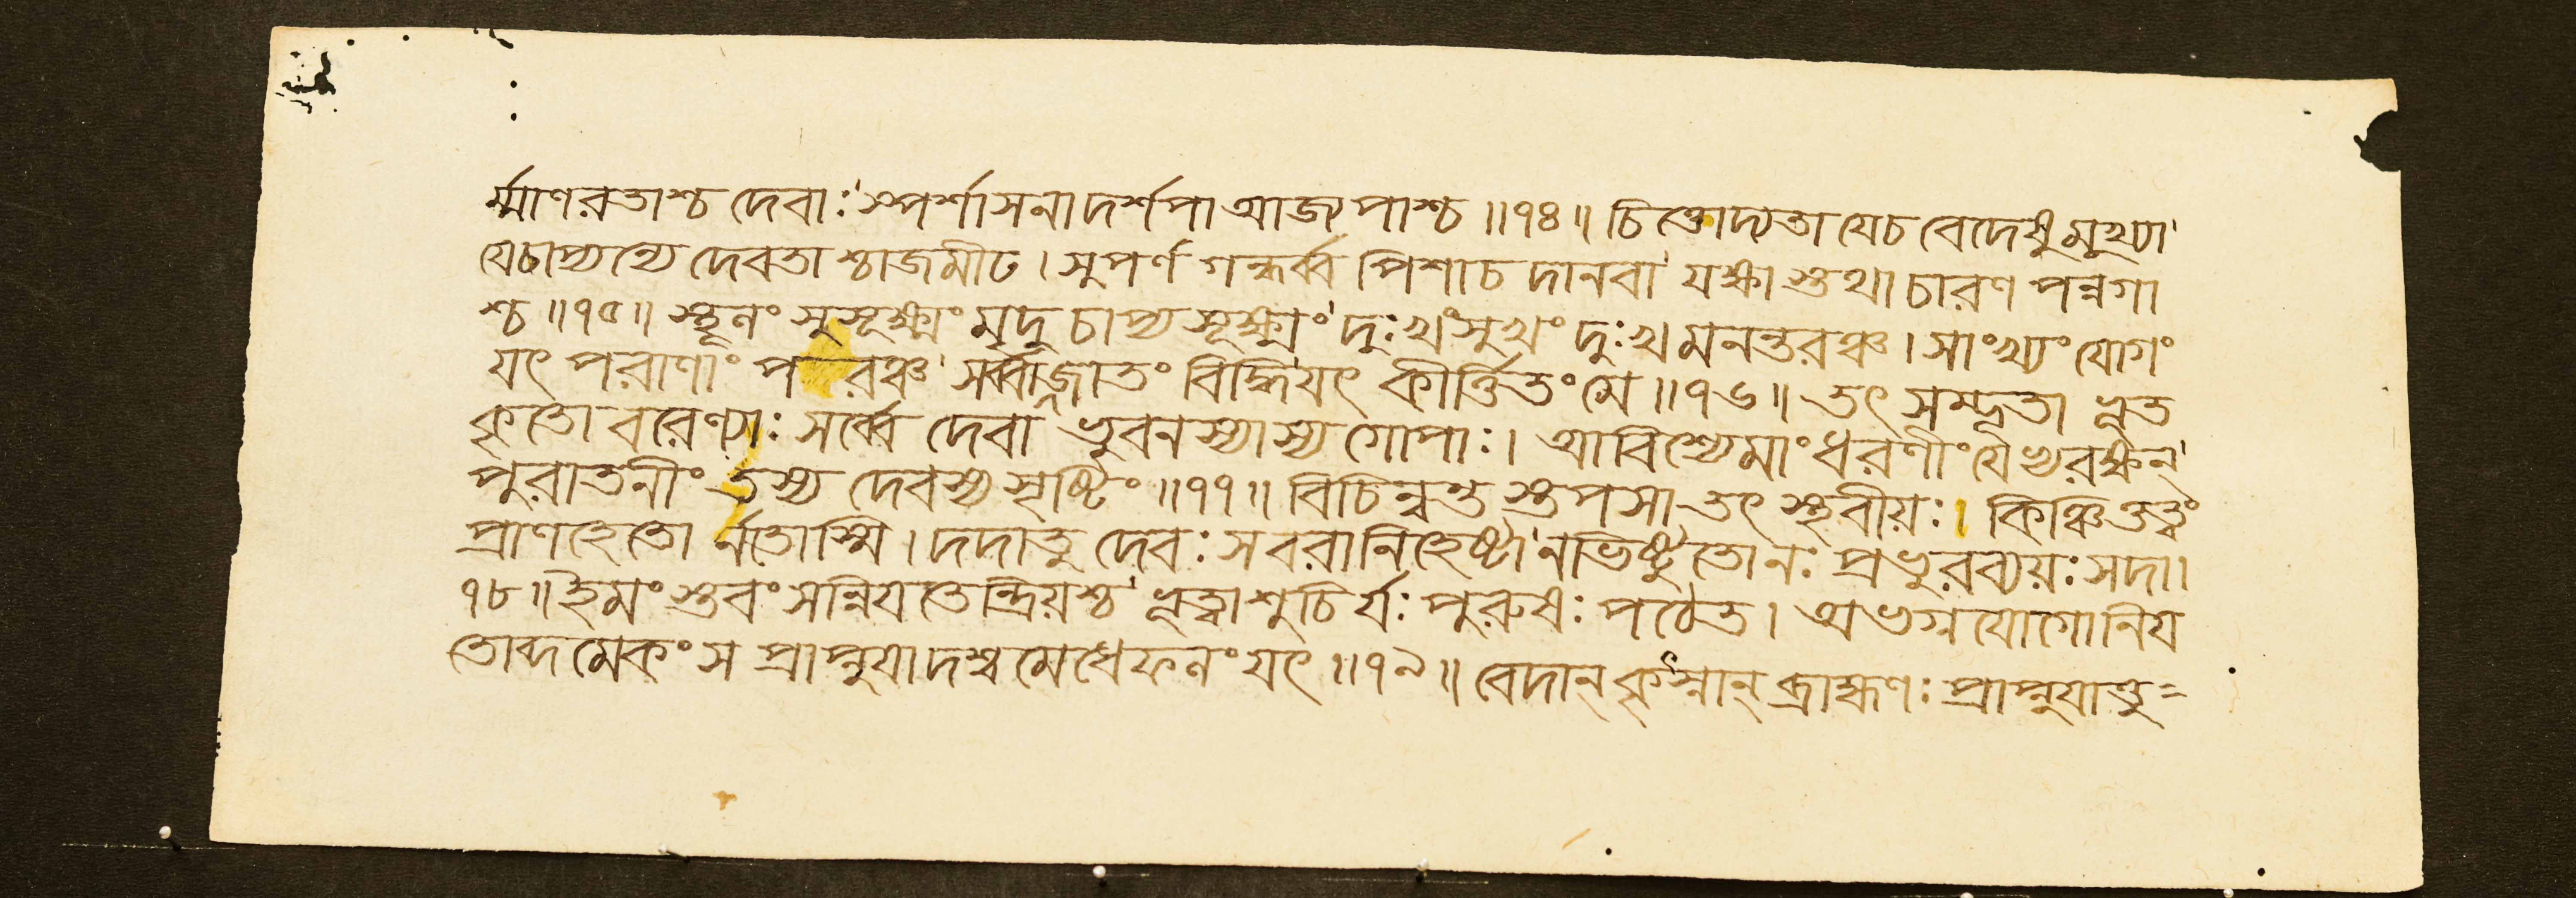 র্ম্মাণরতাশ্চ দেবাঃ স্পর্শাসনাদর্শপা আজ্যপাশ্চ ॥১৪॥ চিন্ত্যোদ্যতা যেচ বেদেষু মুখ্যা
যেচাপ্যন্যে দেবতা শ্চাজমীঢ । সুপর্ণ গন্ধর্ব্ব পিশাচ দানবা যক্ষা স্তথা চারণ পন্নগা
শ্চ ॥১৫॥ স্থূলং সুসূক্ষ্মং মৃদু চাপ্য সূক্ষ্মং দুঃখং সুখং দুঃখ মনন্তরঞ্চ । সাংখ্যং যোগং
যৎ পরাণাং প রঞ্চ সর্ব্বাজ্জাতং বিদ্ধি যৎ কীর্ত্তিতং মে ॥১৬॥ তৎ সম্ভূতা ভূত
কৃতো বরেণ্যাঃ সর্ব্বে দেবা ভুবনস্যাস্য গোপাঃ । আবিশ্যেমাং ধরণীং যেভ্যরক্ষন্
পুরাতনীং তস্য দেবস্য সৃষ্টিং ॥১৭॥ বিচিন্বন্ত স্তপসা তৎ স্থবীয়ঃ । কিঞ্চিত্তত্ত্বং
প্রাণহেতো র্নতোস্মি । দদাতু দেবঃ সবরানিহেষ্টা নভিষ্টুতোনঃ প্রভুরব্যয়ঃ সদা।
১৮॥ ইমং স্তবং সন্নিয়তেন্দ্রিয়শ্চ ভূত্বা শুচি র্যঃ পুরুষঃ পঠেত । অভগ্ন যোগোনিয
তোব্দমেকং স প্রাপ্নুযাদশ্বমেধে ফলং যৎ ॥১৯॥ বেদান্ কৃৎস্নান্ ব্রাহ্মণঃ প্রাপ্নুযাত্তু=